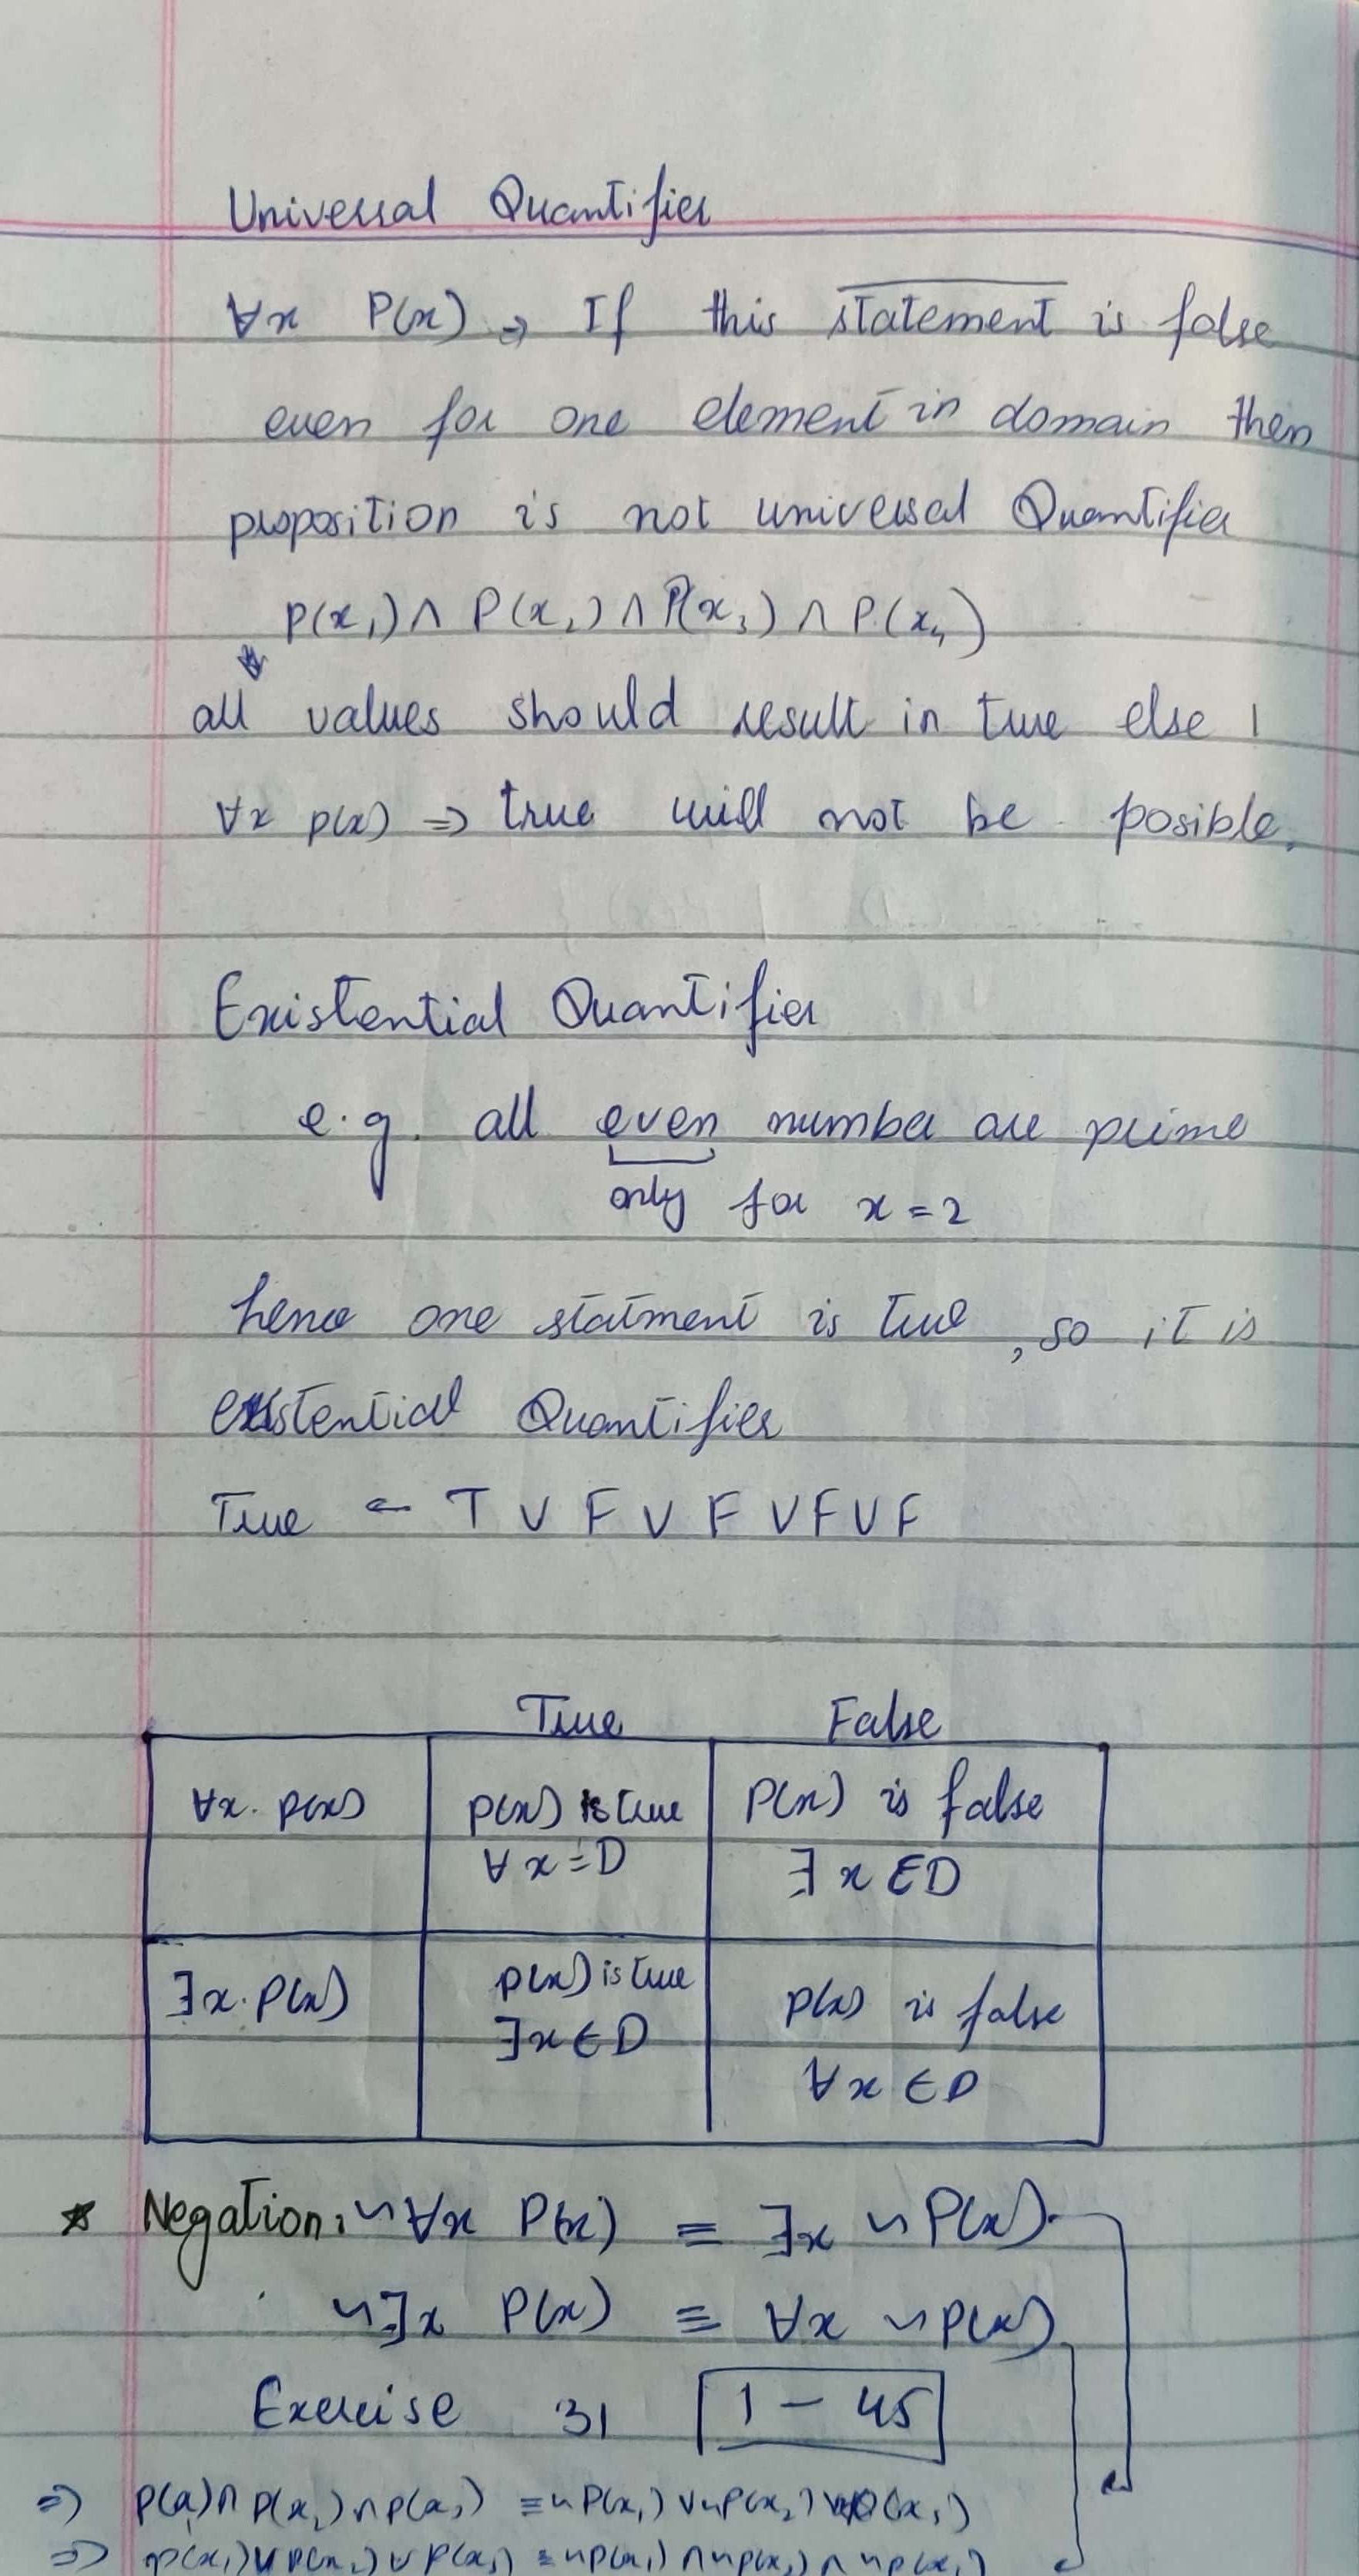 Universal Quantifier
∀x P(x) ⇒ If this statement is false
even for one element in domain then
proposition is not universal Quantifier
P(x₁) ∧ P(x₂) ∧ P(x₃) ∧ P(x₄)
all values should result in true else
∀x p(x) ⇒ true will not be posible.
Existential Quantifier
e.g. all even number are prime
only for x = 2
hence one statment is true, so it is
existential Quantifier
True ← T ∨ F ∨ F ∨ F ∨ F
True False
∀x. p(x) p(x) is true P(x) is false
∀ x = D ∃ x ∈ D
∃x. P(x) p(x) is true p(x) is false
∃x ∈ D ∀x ∈ D
* Negation: ~∀x P(x) ≡ ∃x ~P(x)
~∃x P(x) ≡ ∀x ~P(x)
Exercise 31 1 – 45
⇒ P(x₁) ∧ P(x₂) ∧ P(x₃) ≡ ~P(x₁) ∨ ~P(x₂) ∨ P(x₃)
⇒ P(x₁) ∨ P(x₂) ∨ P(x₃) ≡ ~P(x₁) ∧ ~P(x₂) ∧ ~P(x₃)